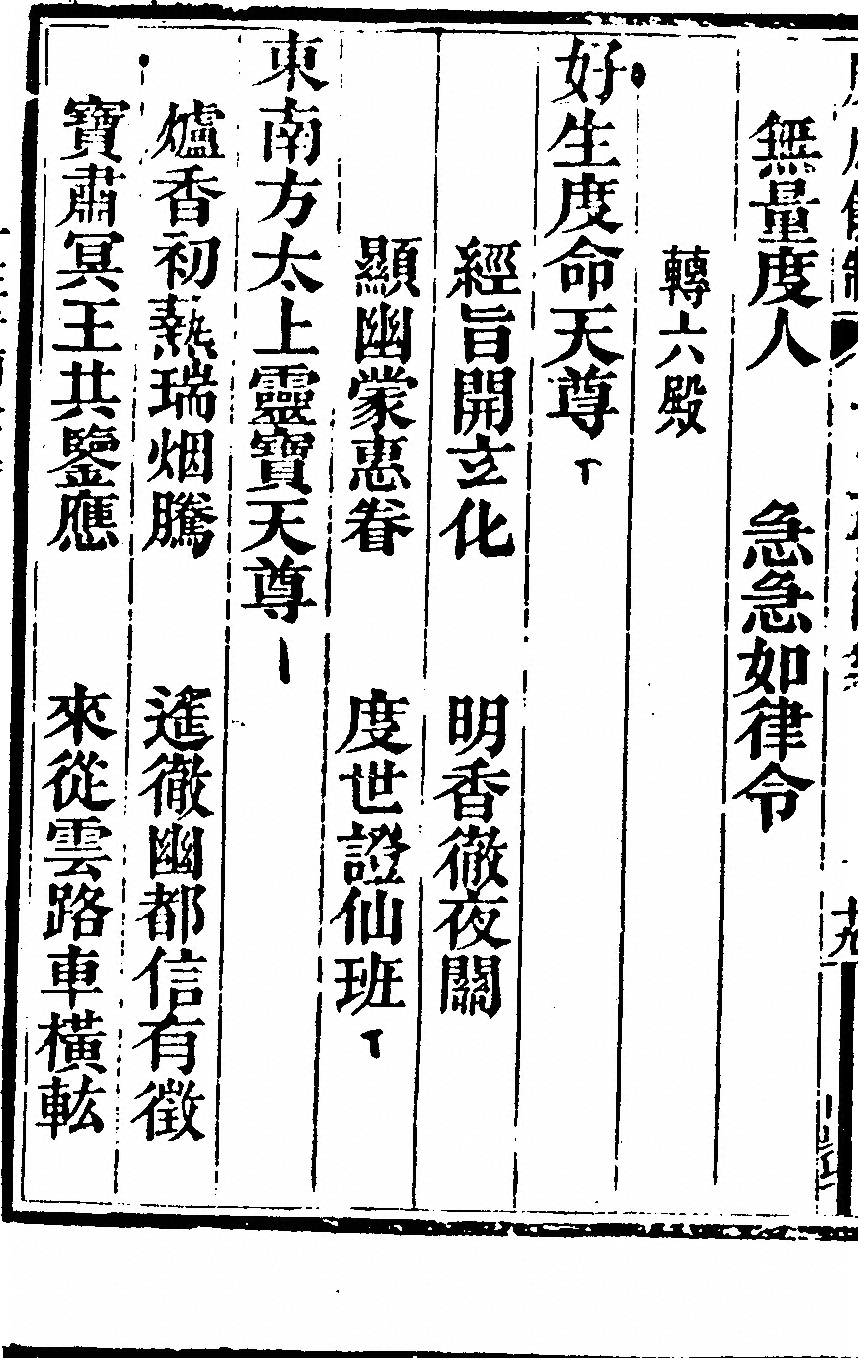 無量度人　急急如律令
轉六殿
好生度命天尊
經旨開玄化　明香徹夜關
顯幽蒙惠眷　度世證仙班
東南方太上靈寶天尊
爐香初爇瑞烟騰　遥徹幽都信有徵
寶肅冥王共鑒應　來從雲路車橫軚
十九